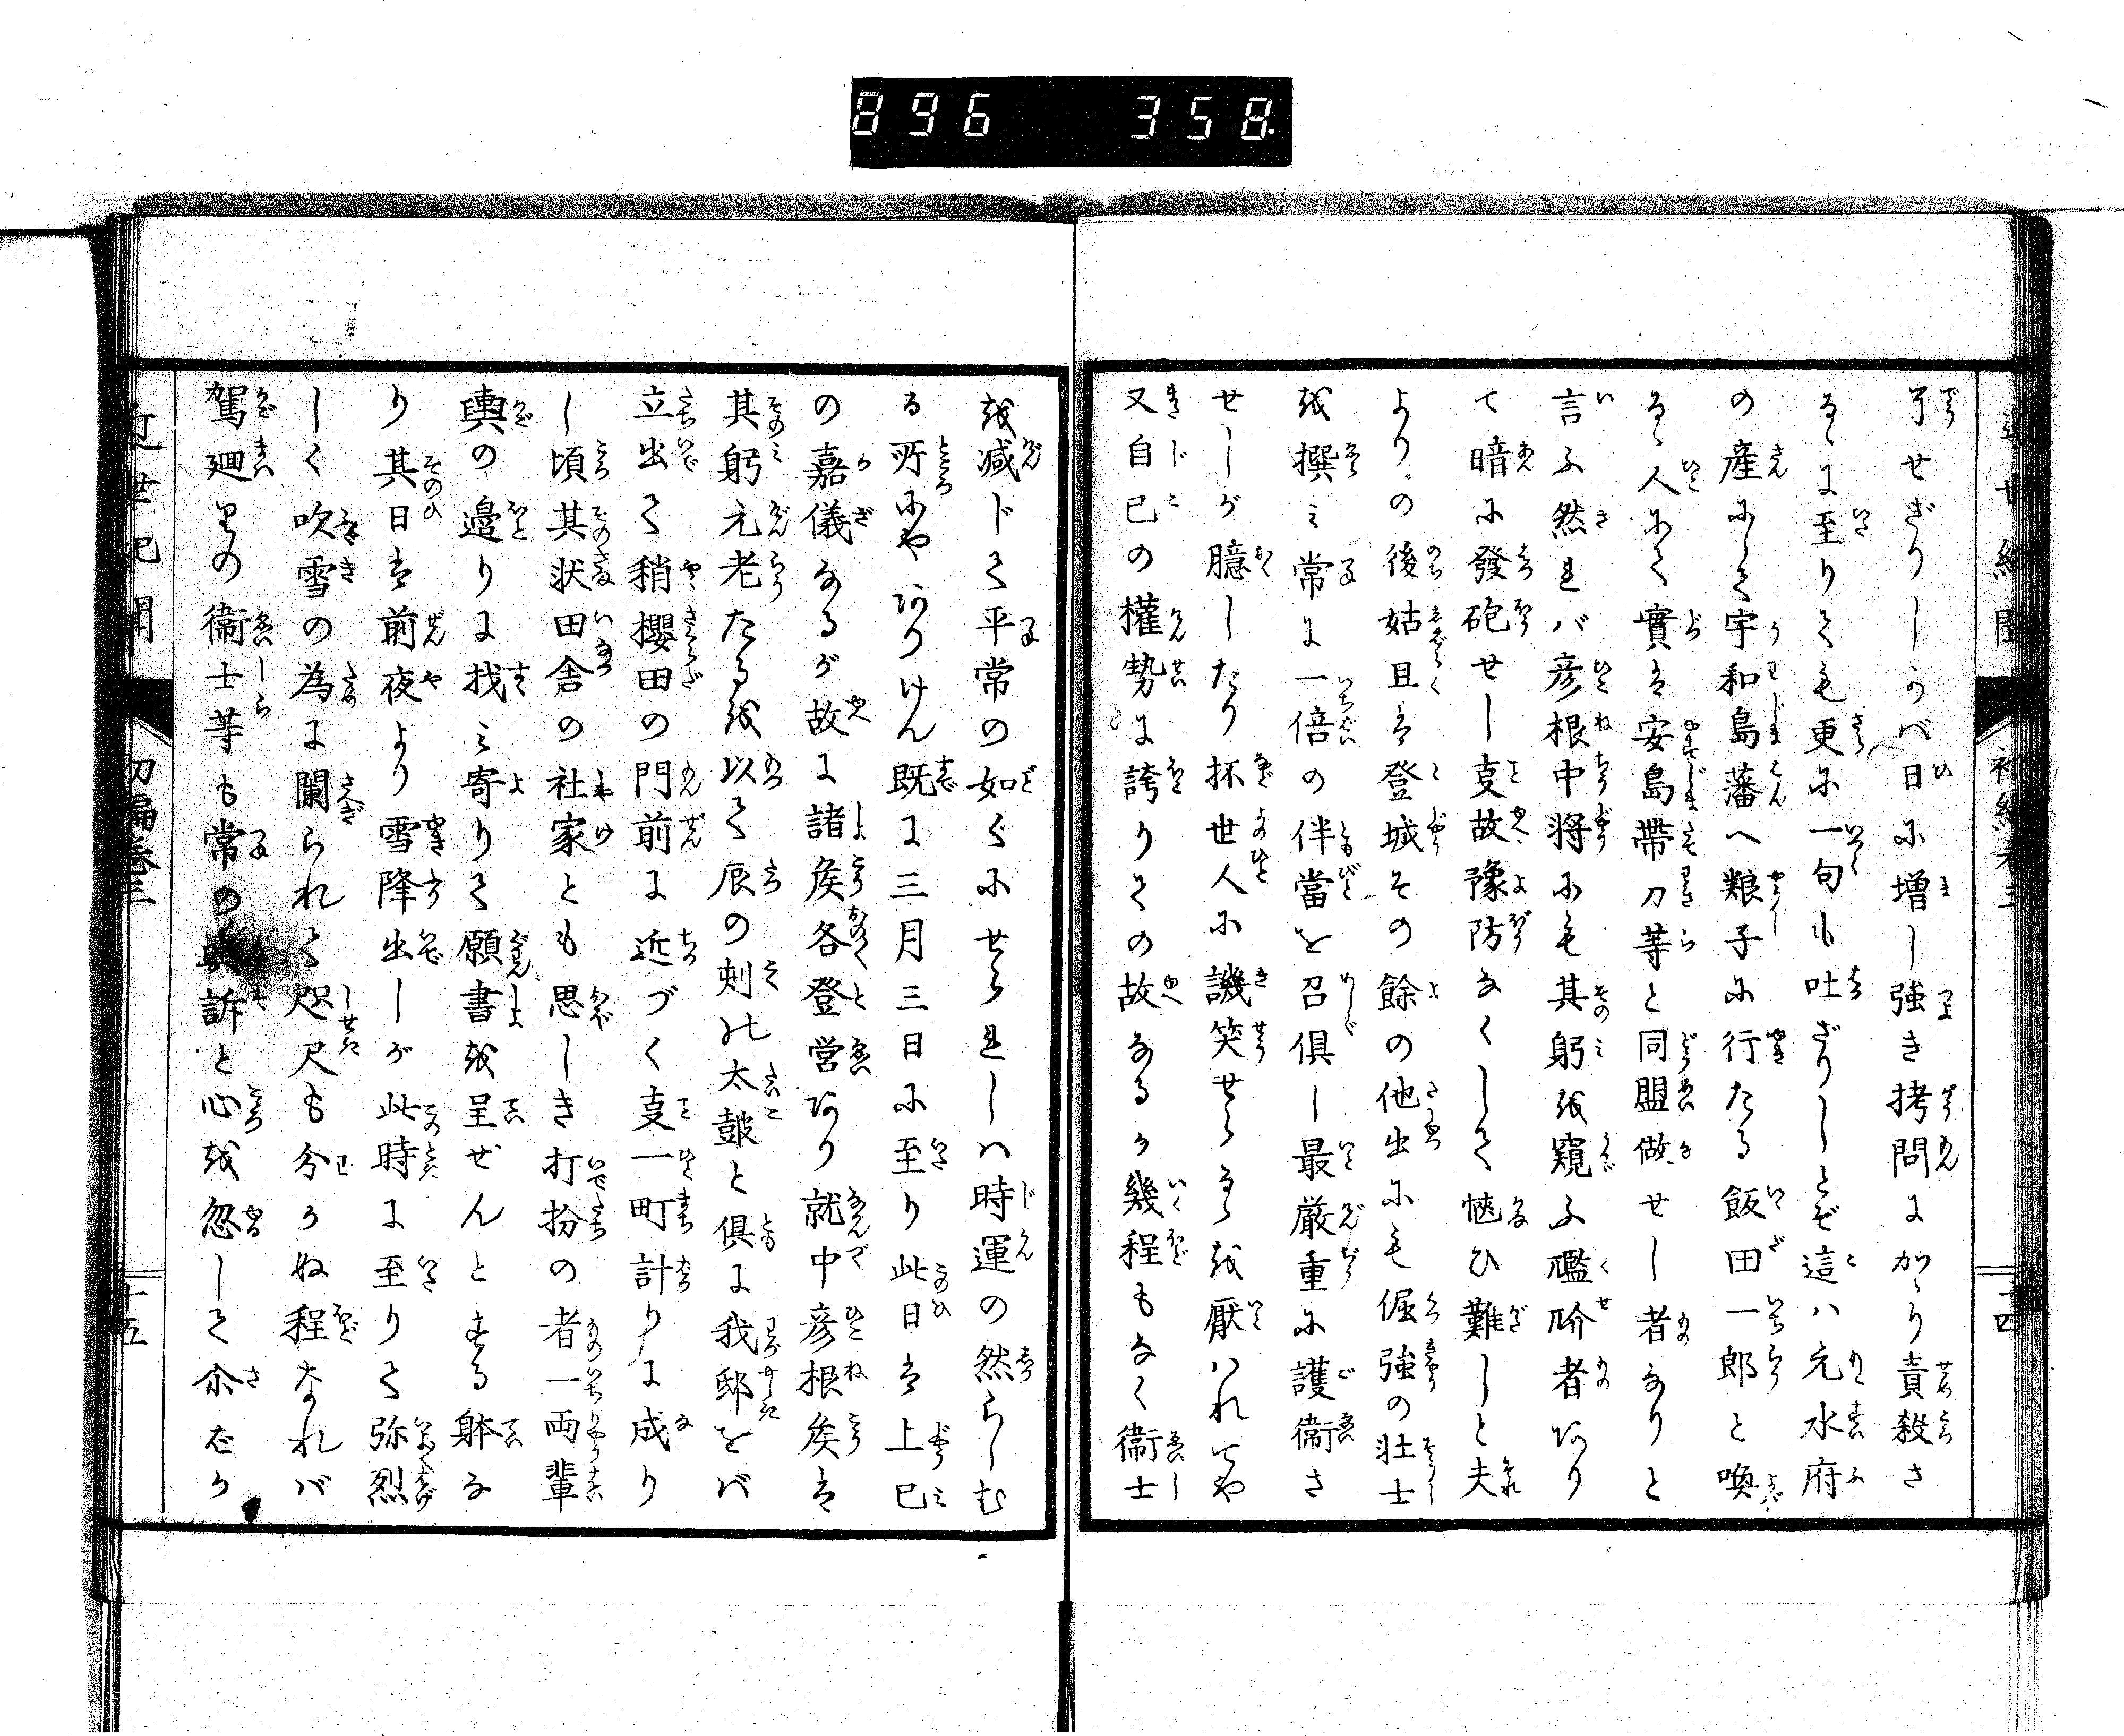 896 358
近世紀聞
初編巻三
十四
了せざりしかバ日に増し強き拷問にかゝり責殺さ
るゝに至りても更に一句も吐ざりしとぞ這ハ元水府
の産にして宇和島藩へ粮子に行たる飯田一郎と喚
るゝ人にて實は安島帶刀等と同盟做せし者なりと
言ふ然れバ彦根中将にも其躬を窺ふ𡾃者あり
て暗に發砲せし支故豫防なくして愜ひ難しと夫
よりの後姑且は登城その餘の他出にも倔強の壮士
を撰み常に一倍の伴當を召倶し最厳重に護衛さ
せしが臆したり抔世人に譏笑せらるゝを厭ハれてや
又自己の權勢に誇りての故なるか幾程もなく衛士
を减じて平常の如くにせられしハ時運の然らしむ
る所にやありけん既に三月三日に至り此日は上巳
の嘉儀なるが故に諸侯各登営あり就中彦根侯は
其躬元老たるを以て辰の刺の太皷と倶に我邸をバ
立出て稍櫻田の門前に近づく支一町計りに成り
し頃其状田舎の社家とも思しき打扮の者一両輩
輿の邉りに找み寄りて願書を呈ぜんとする躰な
り其日は前夜より雪降出しが此時に至りて弥烈
しく吹雪の為に闌られて咫尺も分かぬ程なれバ
駕廻りの衛士等も常の輿訴と心を忽して尒在か
近世紀聞
初編巻三
十五